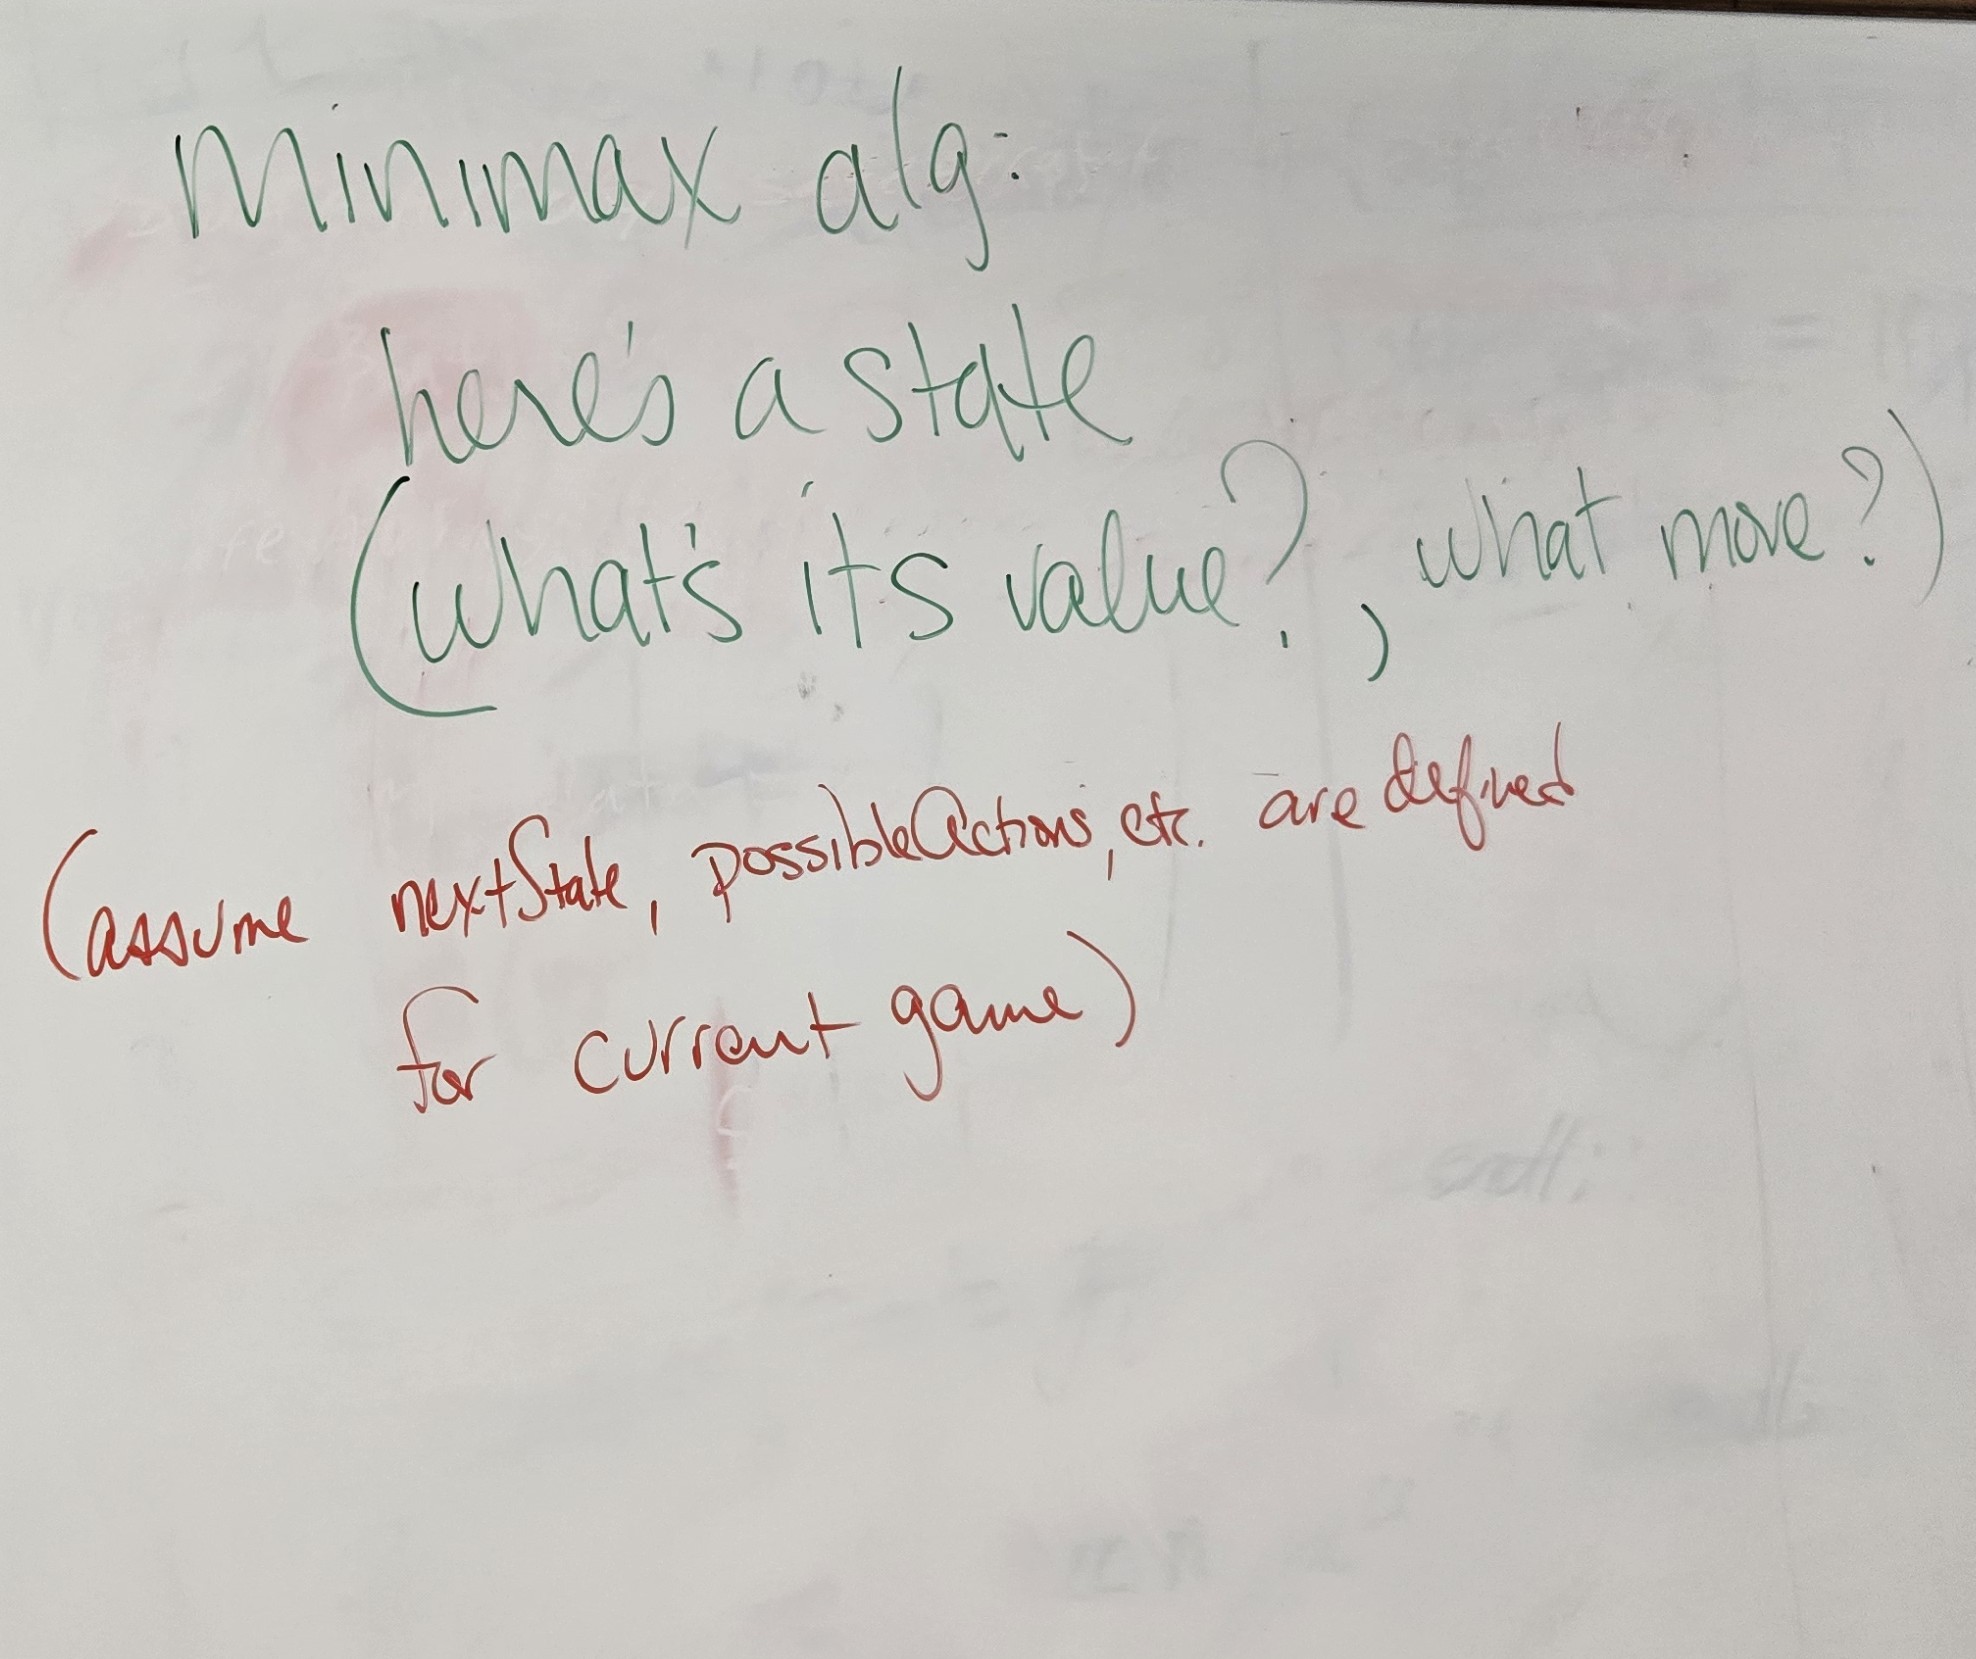 minimax alg:
here's a state
(what's its value?, what move?)
(assume nextState, possibleActions, etc. are defined
for current game)
endl;